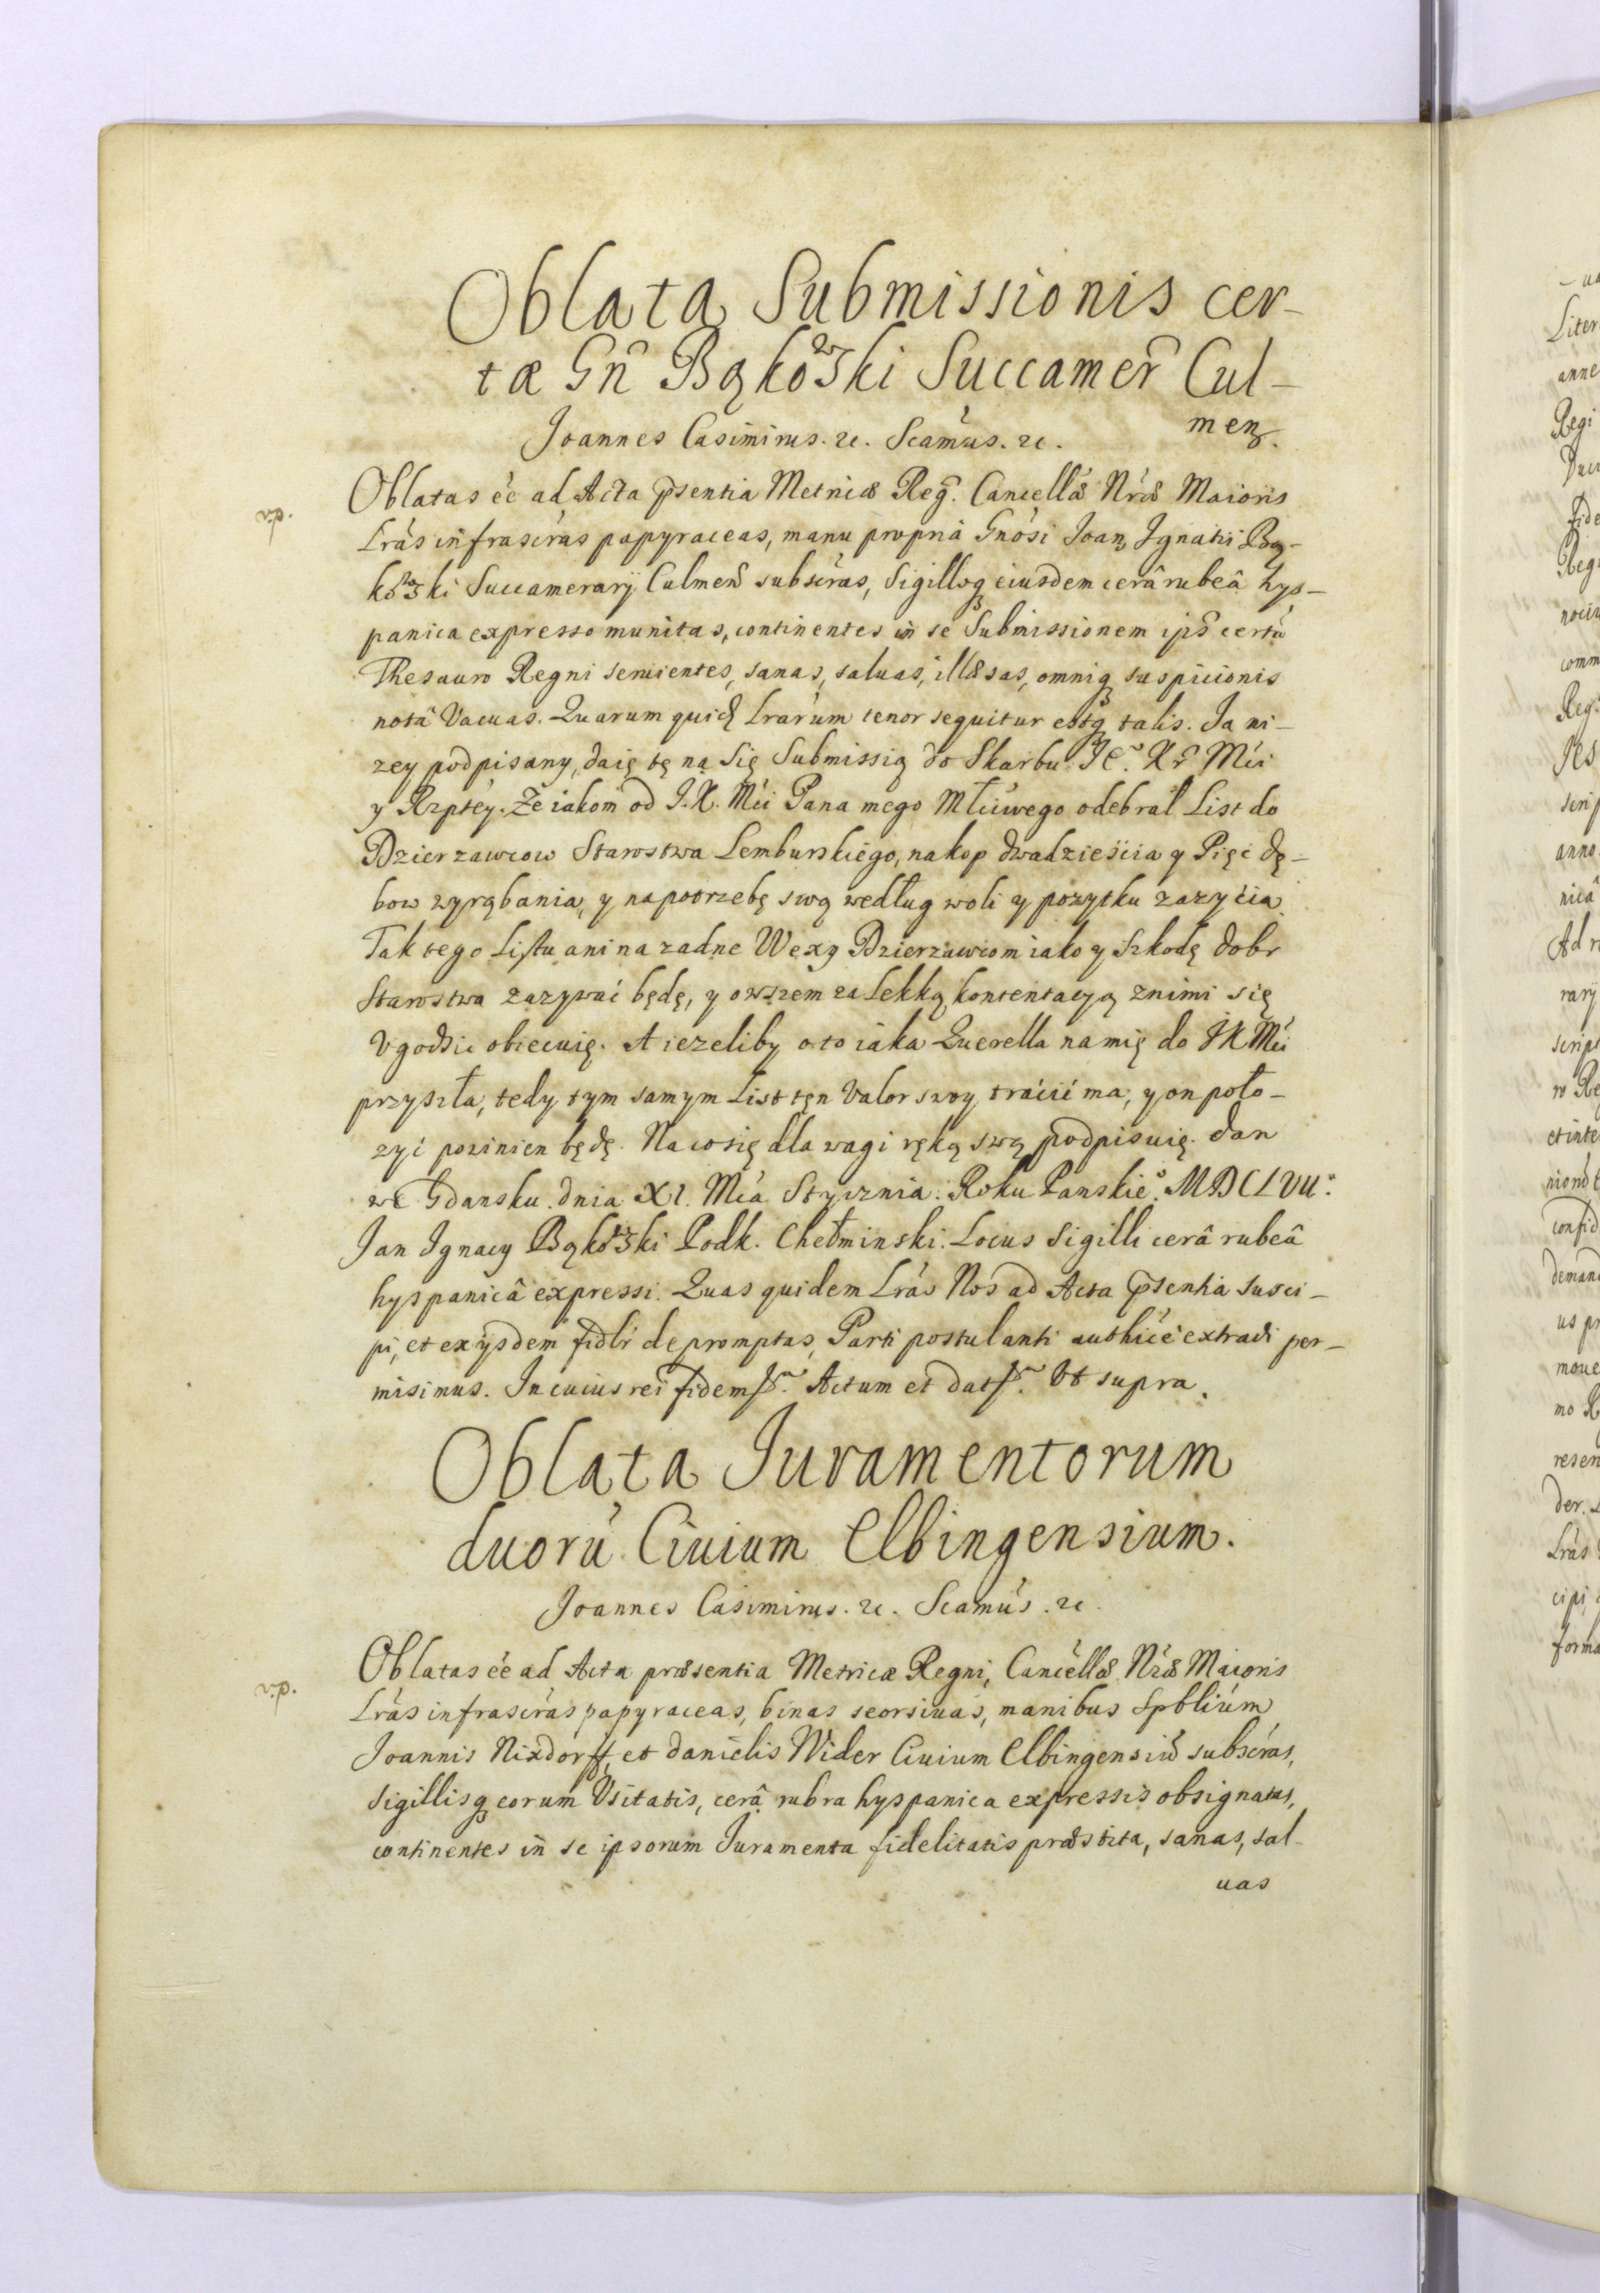 Oblata Submissionis cer-
tæ Gn̄ Bąkowski Succamer̄ Cul-
menˢ.
Joannes Casimirus. &c. Scamus. &c.
Oblatas eē ad Acta p̄sentia Metricæ Reg. Cancellæ Nrǽ Maioris
Lrás infrascrás papyraceas, manu propriâ Gnósi Joanˢ Jgnatii Bą-
kowski Succamerarij Culmenˢ subscrás, Sigilloq́ eiusdem cerâ rubeâ hys-
panica expresso munitas, continentes in se Submissionem ips̄ certā
Thesauro Regni seruientes, sanas, saluas, illæsas, omniq́ suspicionis
notâ Vacuas. Quarum quid̄ Lrárum tenor sequitur estq́ talis. Ja ni-
zey podpisany, daię tę na Się Submissią do Skarbu Je͠. Kr̄ Mći
y Rzptéy. Ze iakom od J. K. Mći Pana mego Młćiwego odebrał List do
Dzierzawcow Starostwa Lemburskiego, na kop dwadzieścia y Pięć dę-
bow wyrąbania, y na potrzebę swą według woli y pozytku zazyćia.
Tak tego Listu ani na zadne Wexy Dzierzawcom iako y Szkodę dobr
Starostwa zazywać będę, y owszem za Lekką kontentacyą znimi się
Vgodzic obiecuię. A iezeliby o to iaka Querella na mię do JK Mći
przyszła, tedy tym samym List tęn Valor swoy tráćić ma, y on poło-
zyć powinien będę. Na co się dla wagi ręką swą podpisuię. dan
we Gdansku. dnia XI. Mća Stycznia. Roku Panskie͠. MDCLVII.
Jan Jgnacy Bąkowski Podk. Chełminski. Locus Sigilli cerâ rubeâ
hyspanicâ expressi. Quas quidem Lrás Nos ad Acta p̄sentia susci-
pi, et exijsdem fidlr̄ depromptas, Parti postulanti authićé extradi per-
misimus. In cuius rei fidem p͠. Actum et dat p͠. Vt supra.
Oblata Juramentorum
duorū Ciuium Elbingensium.
Joannes Casimirus. &c. Scamus. &c.
Oblatas eē ad Acta præsentia Metricæ Regni, Cancéllæ Nrǽ Maioris
Lrás infrascrás papyraceas, binas seorsiuas, manibus Spbliúm
Joannis Nixdorff, et Danielis Wider Ciuium Elbingensiū subscrás,
Sigillisq́ eorum Vsitatis, cerâ rubra hyspanica expressis obsignatas,
continentes in se ipsorum Juramenta fidelitatis præstita, sanas, sal-
uas